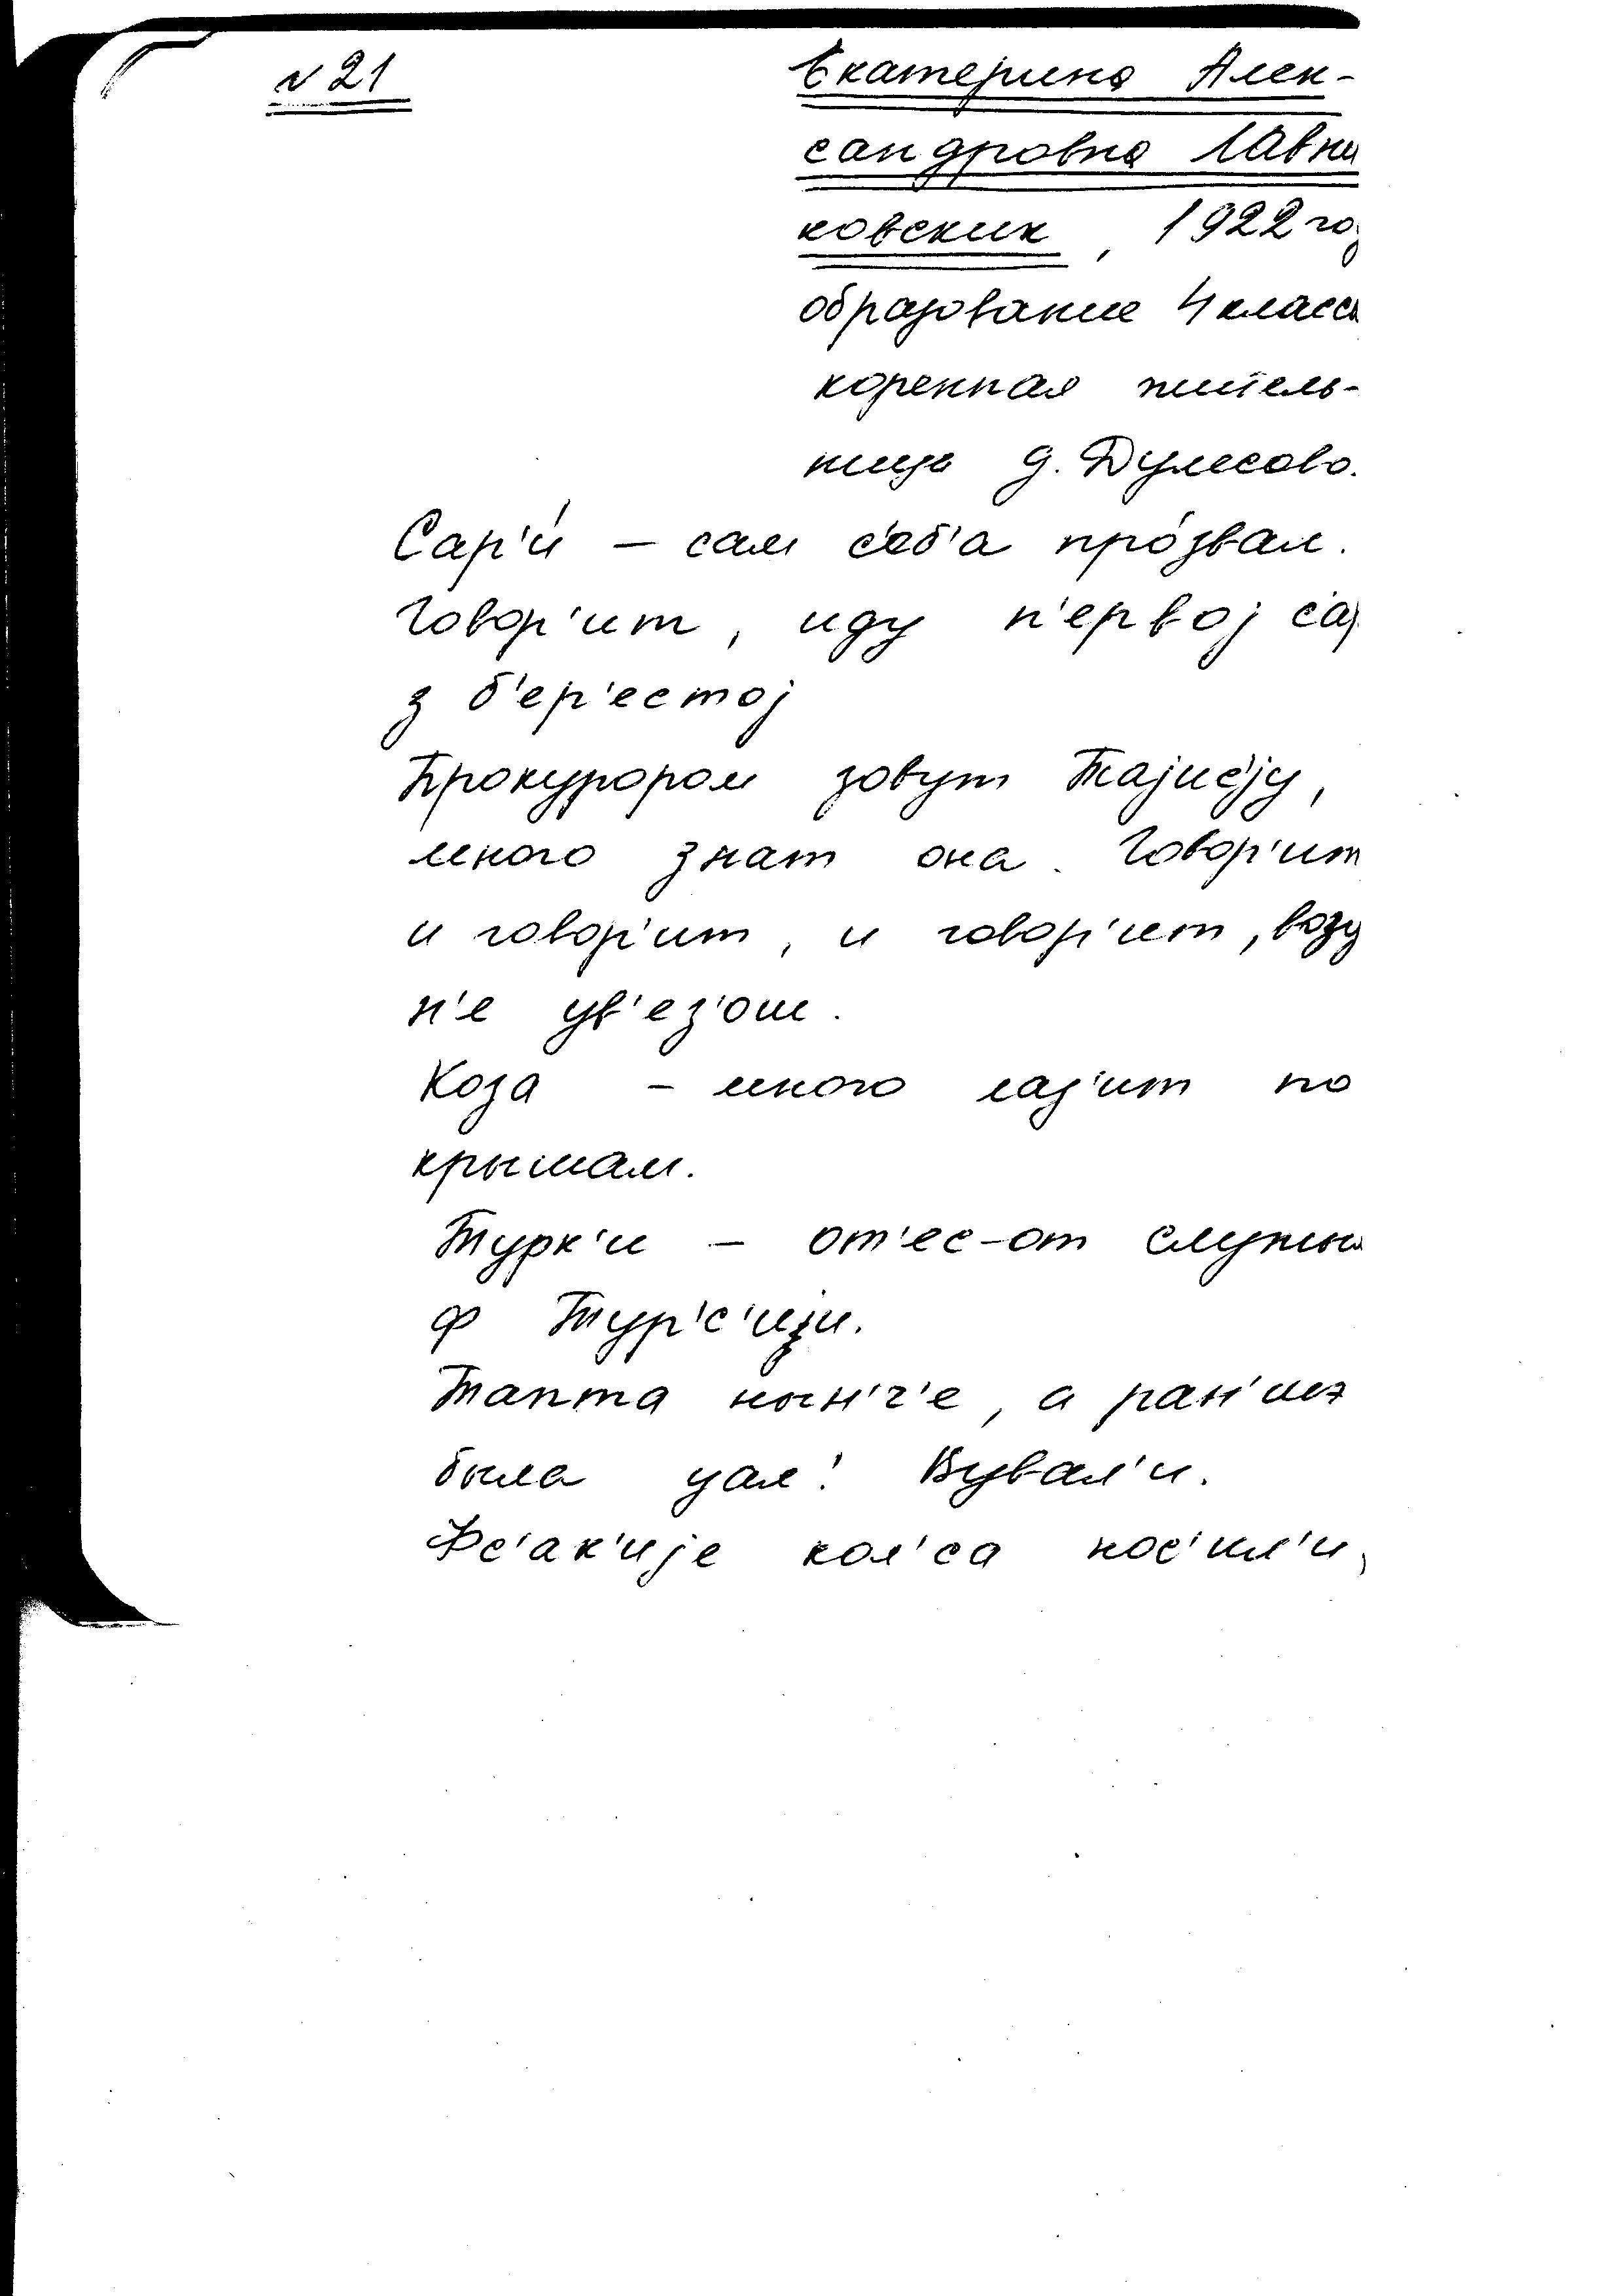 N 21
Екатерина Алек-
сандровна Лавни
ковских, 1922 го
образование 4 класса
коренная житель-
ница д. Дулесово.
Сар'и́ – сам с'еб'а про́звал.
Говор'ит, иду п'ервој с'ар
з б'ер'естој
Прокурором зовут Тајис'jу,
много знат она. Говор'ит
и говор'ит, и говор'ит, возу
н'е ув'ез'ош.
Коза – много лаз'ит по
крышам.
Турк'и – от'ес-от служы
ф Тур'с'ији.
Тапта нын'г'е, а ран'шэ
была уал'. Вувал'и.
Фс'ак'ије кол'са нос'ил'и,